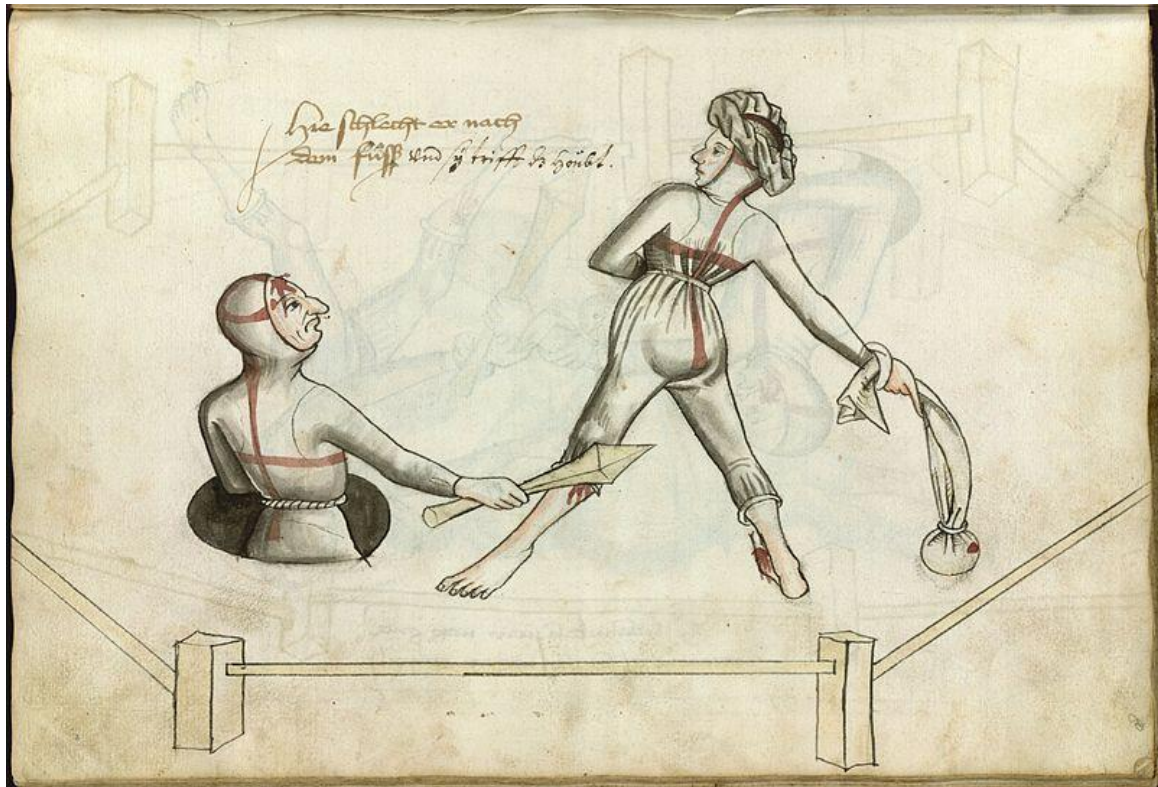 Hie schlecht er nach
dem füsß vnd sÿ trifft dz höubt.